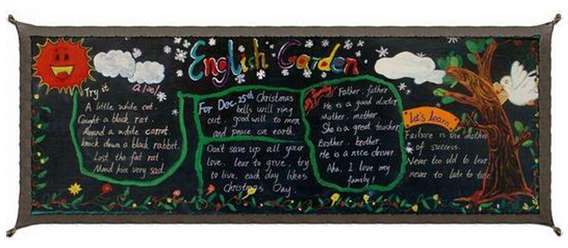 English Garden
Try it a lie!
A little white cat.
Caught a black rat.
Around a white carrot
knock down a black rabbit.
Lost the fat rat
Mind hox very sad.
For Dec. 25th Christmas
bells will ring
out. good will to men
and peace on earth.
Don't save up all your
love. lear to give. try
to live. each day likes
Christmas Day.
Father. father
He is a good doctor
Mother. mother
She is a great teacher
brother. brother
He is a nice driver
Aha. I love my
family!
let's learn
Failure is the mother
of success.
Never too old to learn
never to late to